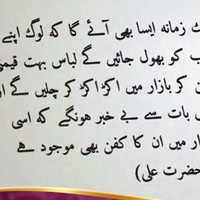 ک زمانہ ایسا بھی آئے گا کہ لوگ اپنے
ب کو بھول جائیں گے لباس بہت قیمتی
ن کر بازار میں اکڑ اکڑ کر چلیں گے او
بات سے بے خبر ہونگے کہ اسی
ار میں ان کا کفن بھی موجود ہے
حضرت علی)